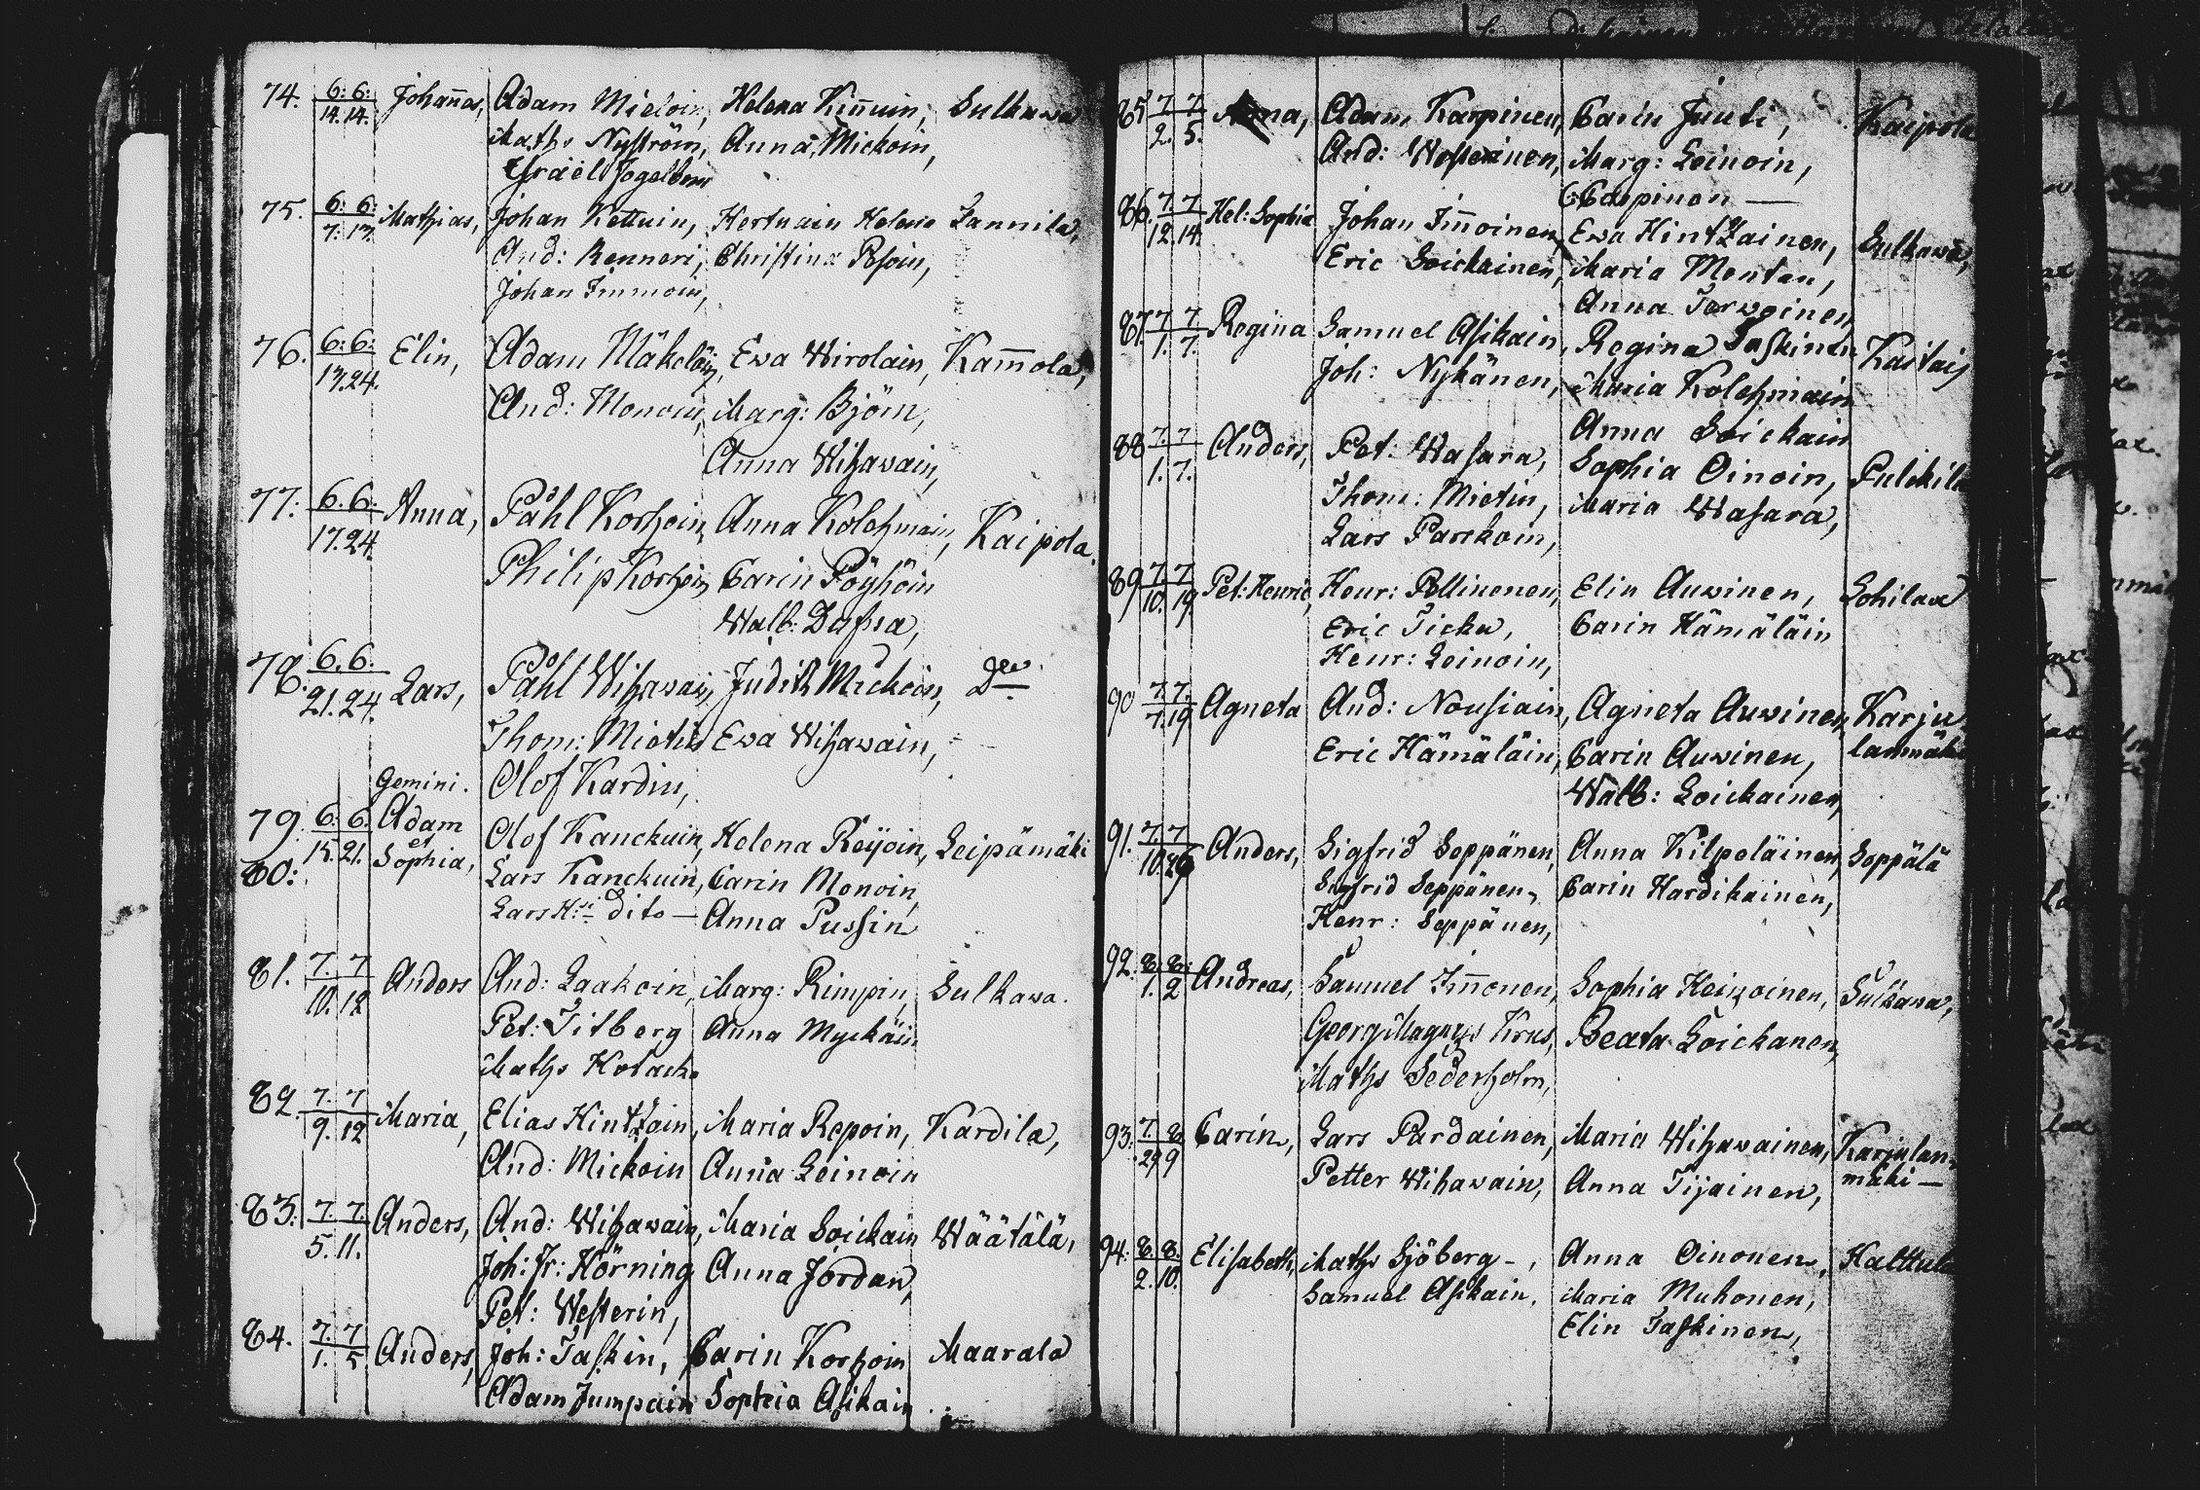 74. 6: 6: Johañes, Adam Mieloin, Helena Kiñuin, Sulkawa
14. 14. Maths Nyström, Anna Mickoin,
Israël Fogelbom
75. 6: 6: Mathias, Johan Kettuin, Hertuain Helena Tannila,
7. 17. And: Renneri, Christina Pesoin,
Johan Immoin,
76. 6: 6: Elin, Adam Mäkeläin, Ewa Wirolain, Kam̃ola,
17. 24. And: Monoin, Marg: Björn,
Anna Wihawain,
77. 6. 6: Anna, Påhl Korhoin, Anna Kolehmain, Kaipola.
17. 24. Philip Korhoin, Carin Pöyhöin
Walb:
78. 6. 6: Lars, Påhl Wihawain, Judith Mickoin,
21. 24. Thom: Mietin Ewa Wihawain,
Olof Kardin,
Gemini.
79. 6: 6. Adam Olof Kanckuin, Helena Reijoin, Leipämäki
80: 15. 21. et Sophia, Lars Kanckuin, Carin Monoin,
Lars H: dito — Anna Pussin
81. 7. 7 Anders And: Laakoin, Marg: Rimpin, Sulkawa.
10. 12 Pet: Titberg Anna Myckäin
Maths Kotacko
82. 7. 7 Maria, Elias Hintzain, Maria Repoin, Kardila,
9. 12 And: Mickoin Anna Leinoin
83: 7. 7. Anders, And: Wihawain, Maria Loickain Wäätälä,
5. 11. Joh: Fr: Hörning Anna Jordan,
Pet: Westerin,
84. 7. 7 Anders, Joh: Taskin, Carin Korhoin Maarala
1. 5 Adam Jumpain Sophia Asikain
85 7. 7 Anna, Adam Karpinen, Carin Juuti, Kaipola
2. 5. And: Westerinen, Marg: Leinoin,
C: Carpinen —
86. 7. 7 Hel: Sophia Johan Im̃oinen, Ewa Hintzainen, Sulkawa,
12. 14. Eric Loickainen, Maria Montan,
Anna Terwoinen
87. 7. 7. Regina Samuel Asikain, Regina Taskinen Kaitais
1. 7. Joh: Nykänen, Maria Kolehmain
Anna Loickain
88 7. 7 Anders, Pet: Wasara, Sophia Oinoin, Pulckila
1. 7. Thom: Mietin, Maria Wasara,
Lars Parckoin,
89 7. 7 Pet: Henric, Henr: Pellinenen, Elin Auwinen, Lohilax
10. 19 Eric Ticka, Carin Hämäläin
Henr: Leinoin,
90 7. 7. Agneta And: Nousiain, Agneta Auwinen, Karju
7. 19 Eric Hämäläin, Carin Auwinen, lanmäki
Walb: Loickainen,
91. 7. 7 Anders, Sigfrid Seppänen, Anna Kilpeläinen, Seppälä
10. 26 Sigfrid Seppänen, Carin Hardikainen,
Henr: Seppänen,
92. 8. 8. Andreas, Samuel Im̃onen, Sophia Heinoinen, Sulkawa,
1. 2 Georg Magnus Krus, Beata Loickanen,
Maths Sederholm,
93. 7. 8 Carin, Lars Pardainen, Maria Wihawainen, Karjulan
29 9 Petter Wihawain, Anna Tijainen, mäki —
94. 8. 8. Elisabeth, Maths Sjöberg -, Anna Oinonen, Halttula
2. 10. Samuel Asikain, Maria Muhonen,
Elin Taskinen,